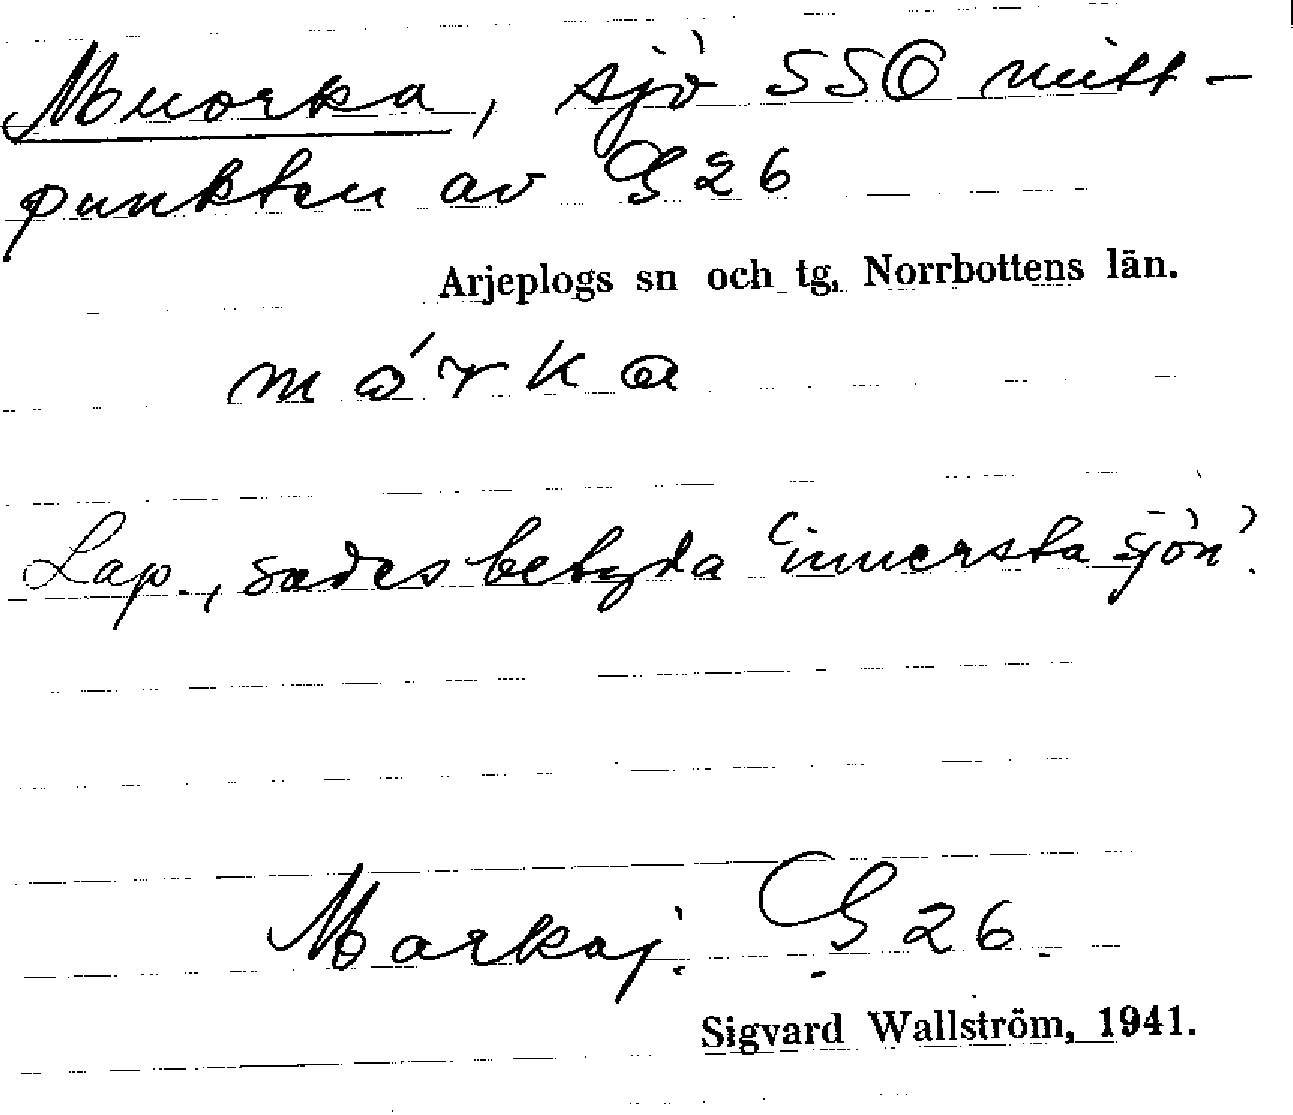 Muorka, sjö 550 mitt-
punkten av G 26
Arjeplogs sn och tg, Norrbottens län.
mórka
Lap., sades betyda 'innersta sjön'.
Markaj. G 26
Sigvard Wallström, 1941.